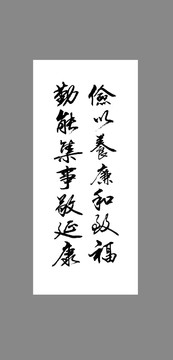 儉以養廉和致福
勤能集事敬延康